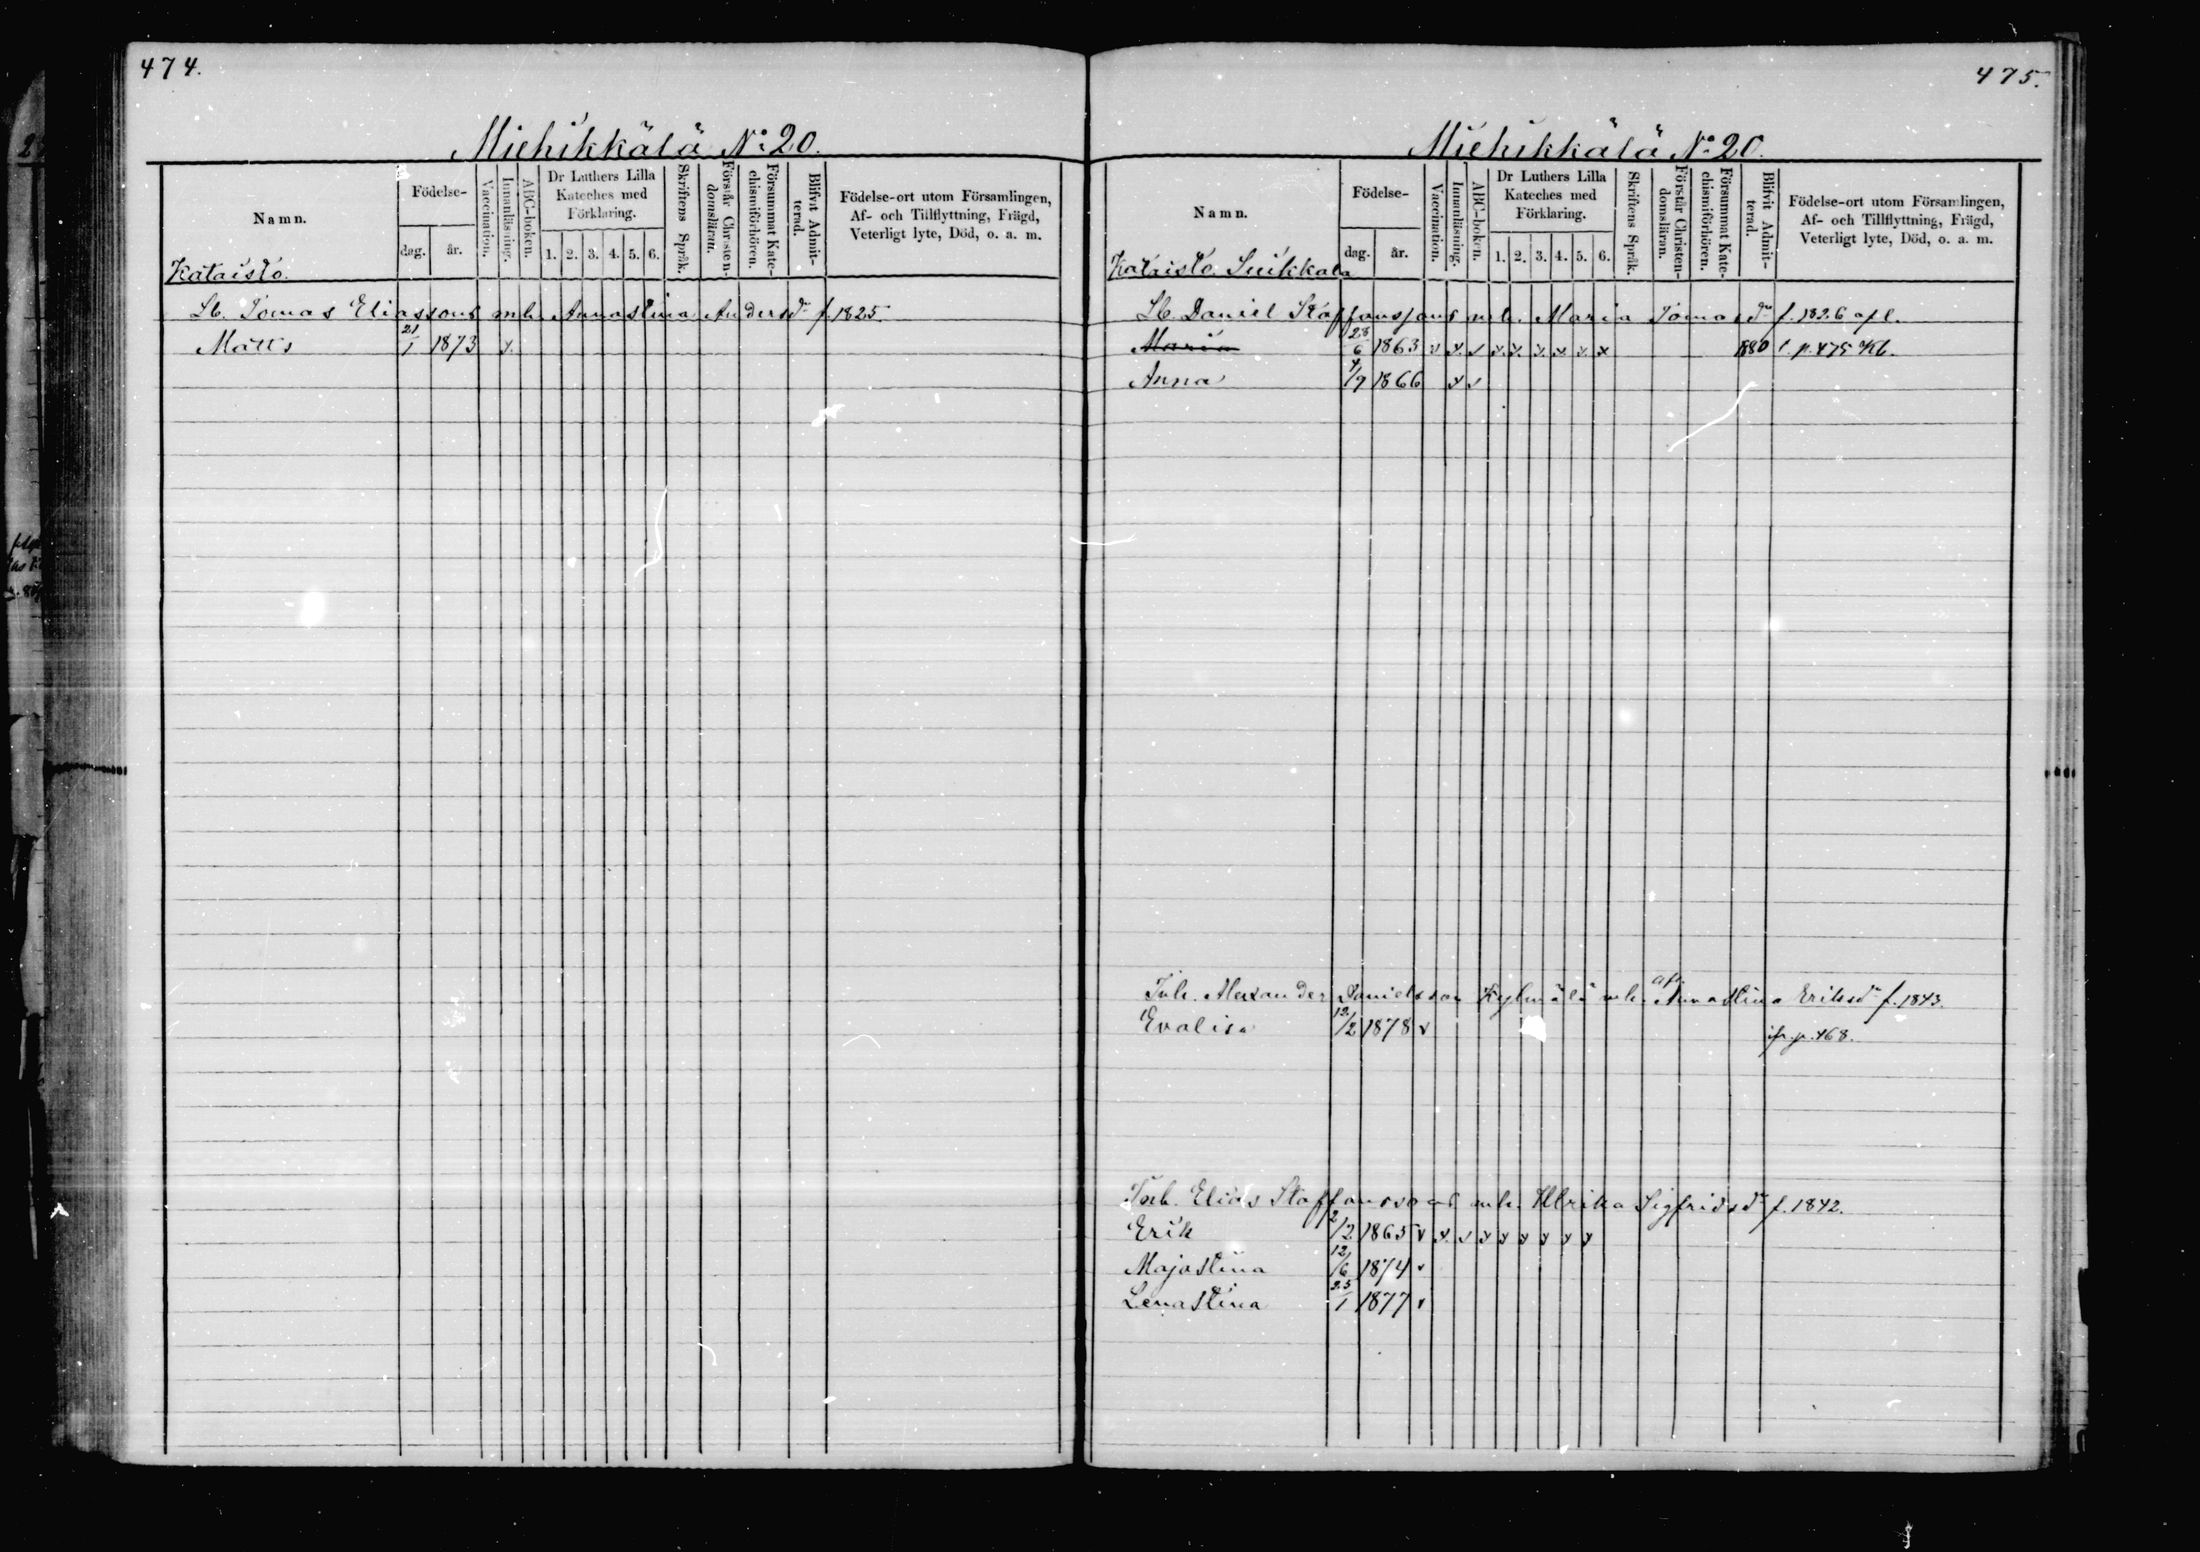 474.
Miehikkälä No 20.
Namn.
Födelse-
dag. år.
Vaccination.
Innanläsning.
ABC-boken.
Dr Luthers Lilla
Kateches med
Förklaring.
1. 2. 3. 4. 5. 6.
Skriftens Språk.
Förstår Christen-
domsläran.
Försummat Kate-
chismiförhören.
Blifvit Admit-
terad.
Födelse-ort utom Församlingen,
Af- och Tillflyttning, Frägd,
Veterligt lyte, Död, o. a. m.
Kataisto.
Lb. Tomas Eliassons enk. Annastina Andersdr f. 1825.
Matts 21/1 1873 x.
475.
Miehikkälä No 20.
Namn.
Födelse-
dag. år.
Vaccination.
Innanläsning.
ABC-boken.
Dr Luthers Lilla
Kateches med
Förklaring.
1. 2. 3. 4. 5. 6.
Skriftens Språk.
Förstår Christen-
domsläran.
Försummat Kate-
chismiförhören.
Blifvit Admit-
terad.
Födelse-ort utom Församlingen,
Af- och Tillflyttning, Frägd,
Veterligt lyte, Död, o. a. m.
Kataisto Suikkala
Lb. Daniel Staffanssons enk. Maria Tomasdr f. 1826 afl.
Maria 28/6 1863 v x. v x. x. x x. x. x 1880 t. p. 475 Kb.
Anna 4/9 1866 x v
Inh. Alexander Danielsson Kylmälä enk. Annastina Eriksdr f. 1843.
Evalisa 12/2 1878 v p. 468.
Inh. Elias Staffanssons enk. Ulrika Sigfridsdr f. 1842.
Erik 2/2 1865 v x. v x x x x x x
Majastina 12/6 1874 v
Lenastina 25/1 1877 v